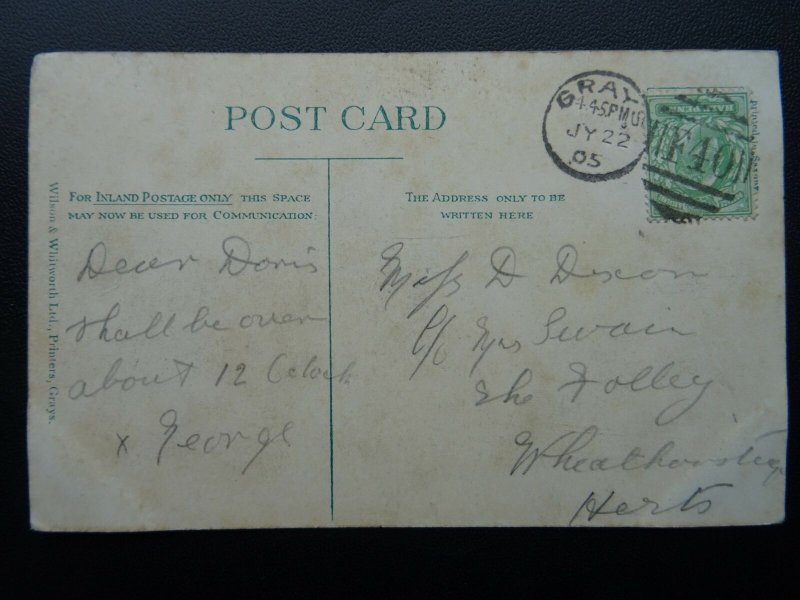 POST CARD
FOR INLAND POSTAGE ONLY THIS SPACE
MAY NOW BE USED FOR COMMUNICATION:
THE ADDRESS ONLY TO BE
WRITTEN HERE
Wilson & Whitworth Ltd., Printers, Grays.
GRAY
4.45PM
JY 22
05
F40
Dear Doris
shall be over
about 12 Oclock
x George
Miss D Dixon
C/o Mrs Swain
The Folley
Wheathamstead
Herts